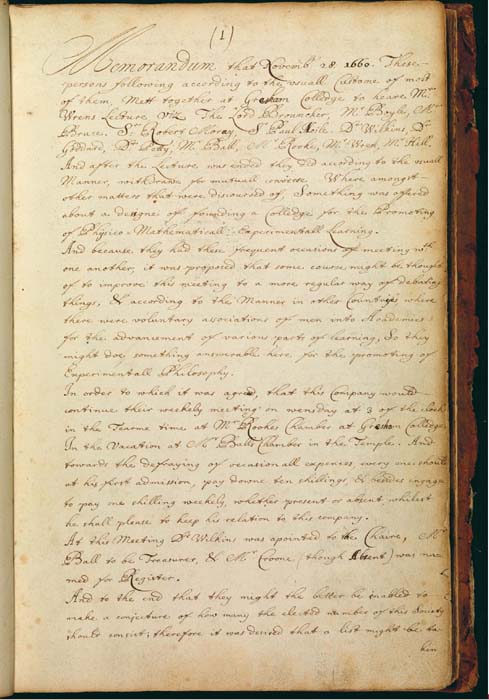 (1)
Memorandum that Novemb. 28. 1660. These
persons following according to the usuall Custome of most
of them, Mett together at Gresham Colledge to heare Mr
Wrens Lecture, viz. The Lord Brouncker, Mr Boyle, Mr
Bruce, Sr Robert Moray, Sr Paul Neile, Dr Wilkins, Dr
Goddard, Dr Petty, Mr Ball, Mr Rooke, Mr Wren, Mr Hill.
And after the Lecture was ended they did according to the usuall
Manner, withdrawe for mutuall converse. Where amongst
other matters that were discoursed of, Something was offered
about a designe of founding a Colledge for the Promoting
of Physico-Mathematicall Experimentall Learning.
And because they had these frequent occasions of meeting with
one another, it was proposed that some course might be thought
of to improve this meeting to a more regular way of debating
things, & according to the Manner in other Countryes where
there were voluntary associations of men into Academies
for the advancement of various parts of learning, So they
might doe something answerable here for the promoting of
Experimentall Philosophy.
In order to which it was agreed, that this Company would
continue their weekely meeting on wensday at 3 of the clock
in the Tearme time at Mr Rookes Chamber at Gresham Colledge
In the Vacation at Mr Balls Chamber in the Temple. And
towards the defraying of occasionall expences every one should
at his first admission, pay downe ten shillings, & besides engage
to pay one shilling weekely, whether present or absent whilest
he shall please to keep his relation to this company.
At this Meeting Dr Wilkins was apointed to the Chaire, Mr
Ball to be Treasurer, & Mr Croone (though Absent) was na-
med for Register.
And to the end that they might the better be inabled to
make a conjecture of how many the elected number of this Society
should consist; therefore it was desired that a list might be ta-
kin